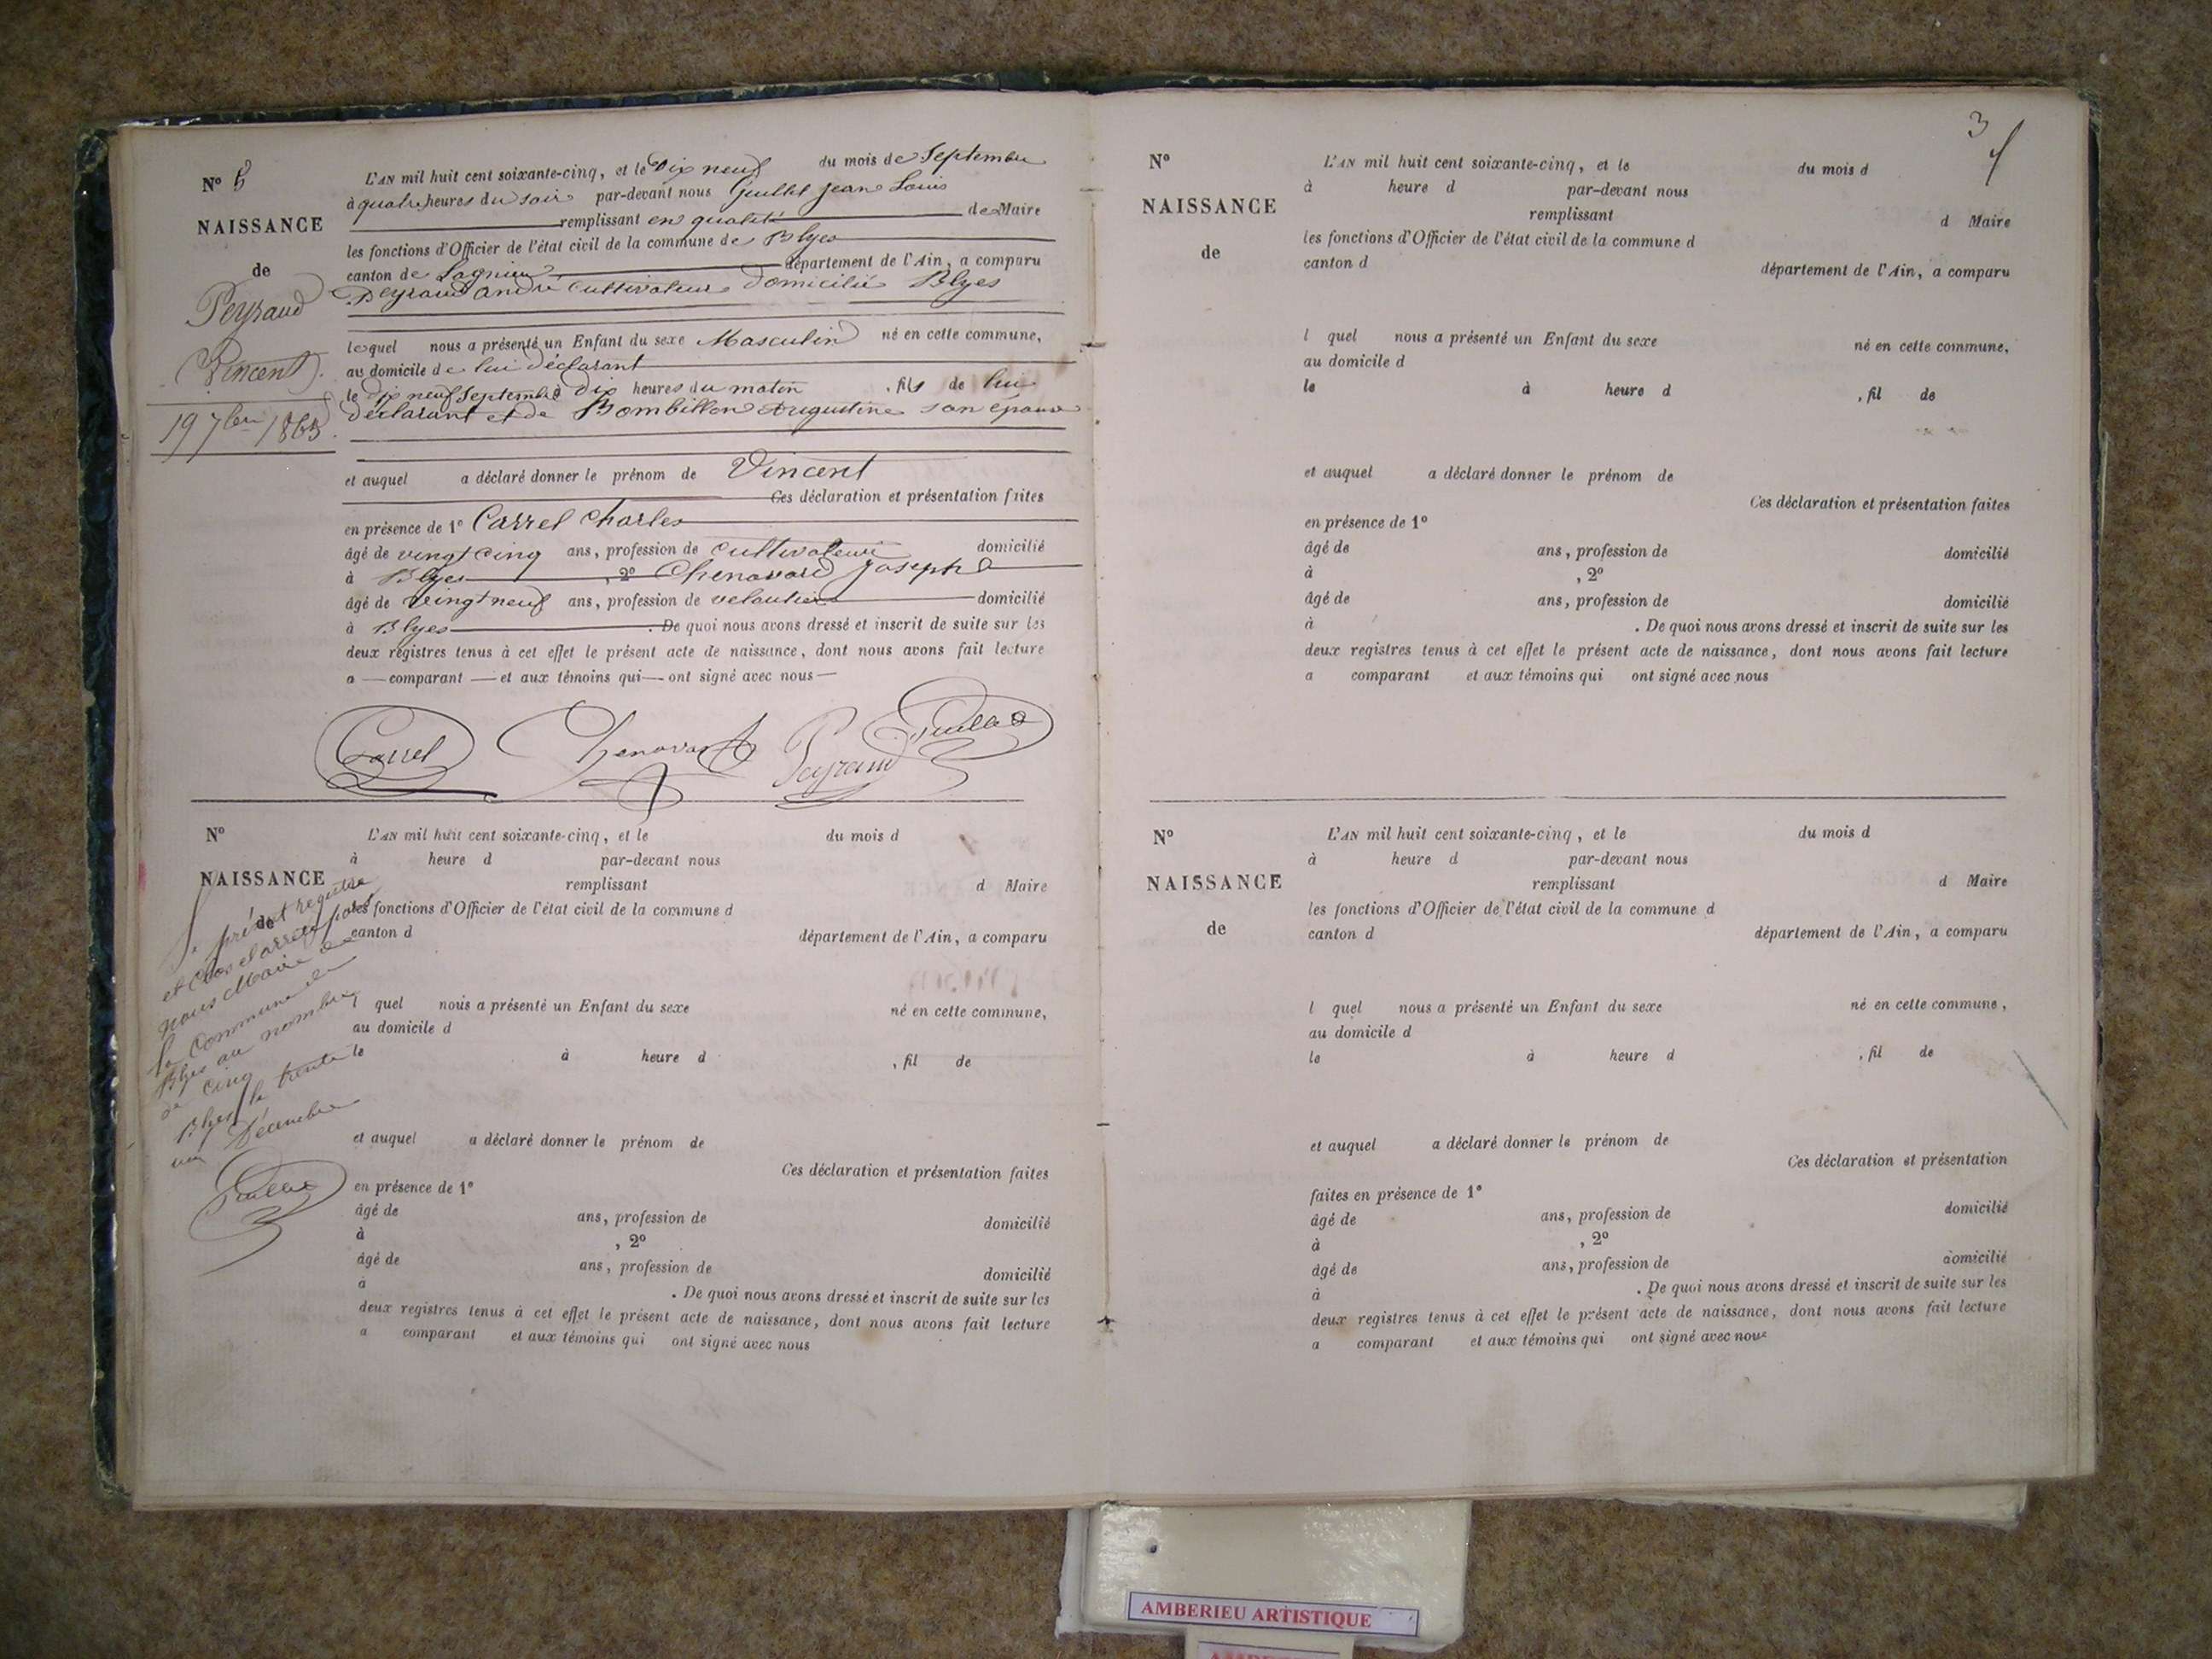 N° 5
NAISSANCE
de
Peyraud
Vincent
19 7bre 1865
L'AN mil huit cent soixante-cinq, et le Dix neuf du mois de Septembre
à quatre heures du soir par-devant nous Guillet Jean Louis
remplissant en qualité de Maire
les fonctions d'Officier de l'état civil de la commune de Blyes
canton de Lagnieu département de l'Ain, a comparu
Peyraud andré Cultivateur domicilié Blyes
lequel nous a présenté un Enfant du sexe Masculin né en cette commune,
au domicile de lui déclarant
le dix neuf Septembre à Dix heures du matin , fils de lui
déclarant et de Bombillon Augustine son épouse
et auquel a déclaré donner le prénom de Vincent
Ces déclaration et présentation faites
en présence de 1° Carrel Charles
âgé de vingt cinq ans, profession de cultivateur domicilié
à Blyes , 2° Chenavard Joseph
âgé de vingt neuf ans, profession de domicilié
à Blyes . De quoi nous avons dressé et inscrit de suite sur les
deux registres tenus à cet effet le présent acte de naissance, dont nous avons fait lecture
a comparant et aux témoins qui ont signé avec nous
Carrel Chenavard Peyraud Guillet
N°
NAISSANCE
de
présent registre
et clos et arrêté par
nous Maire de
la Commune de
Blyes au nombre
de cinq
Blyes le trente
un Décembre
Guillet
L'AN mil huit cent soixante-cinq, et le du mois d
à heure d par-devant nous
remplissant d Maire
les fonctions d'Officier de l'état civil de la commune d
canton d département de l'Ain, a comparu
l quel nous a présenté un Enfant du sexe né en cette commune,
au domicile d
le à heure d , fil de
et auquel a déclaré donner le prénom de
Ces déclaration et présentation faites
en présence de 1°
âgé de ans, profession de domicilié
à , 2°
âgé de ans, profession de domicilié
à . De quoi nous avons dressé et inscrit de suite sur les
deux registres tenus à cet effet le présent acte de naissance, dont nous avons fait lecture
a comparant et aux témoins qui ont signé avec nous
3
N°
NAISSANCE
de
L'AN mil huit cent soixante-cinq, et le du mois d
à heure d par-devant nous
remplissant d Maire
les fonctions d'Officier de l'état civil de la commune d
canton d département de l'Ain, a comparu
l quel nous a présenté un Enfant du sexe né en cette commune,
au domicile d
le à heure d , fil de
et auquel a déclaré donner le prénom de
Ces déclaration et présentation faites
en présence de 1°
âgé de ans, profession de domicilié
à , 2°
âgé de ans, profession de domicilié
à . De quoi nous avons dressé et inscrit de suite sur les
deux registres tenus à cet effet le présent acte de naissance, dont nous avons fait lecture
a comparant et aux témoins qui ont signé avec nous
N°
NAISSANCE
de
L'AN mil huit cent soixante-cinq, et le du mois d
à heure d par-devant nous
remplissant d Maire
les fonctions d'Officier de l'état civil de la commune d
canton d département de l'Ain, a comparu
l quel nous a présenté un Enfant du sexe né en cette commune,
au domicile d
le à heure d , fil de
et auquel a déclaré donner le prénom de
Ces déclaration et présentation
faites en présence de 1°
âgé de ans, profession de domicilié
à , 2°
âgé de ans, profession de domicilié
à . De quoi nous avons dressé et inscrit de suite sur les
deux registres tenus à cet effet le présent acte de naissance, dont nous avons fait lecture
a comparant et aux témoins qui ont signé avec nous
AMBERIEU ARTISTIQUE